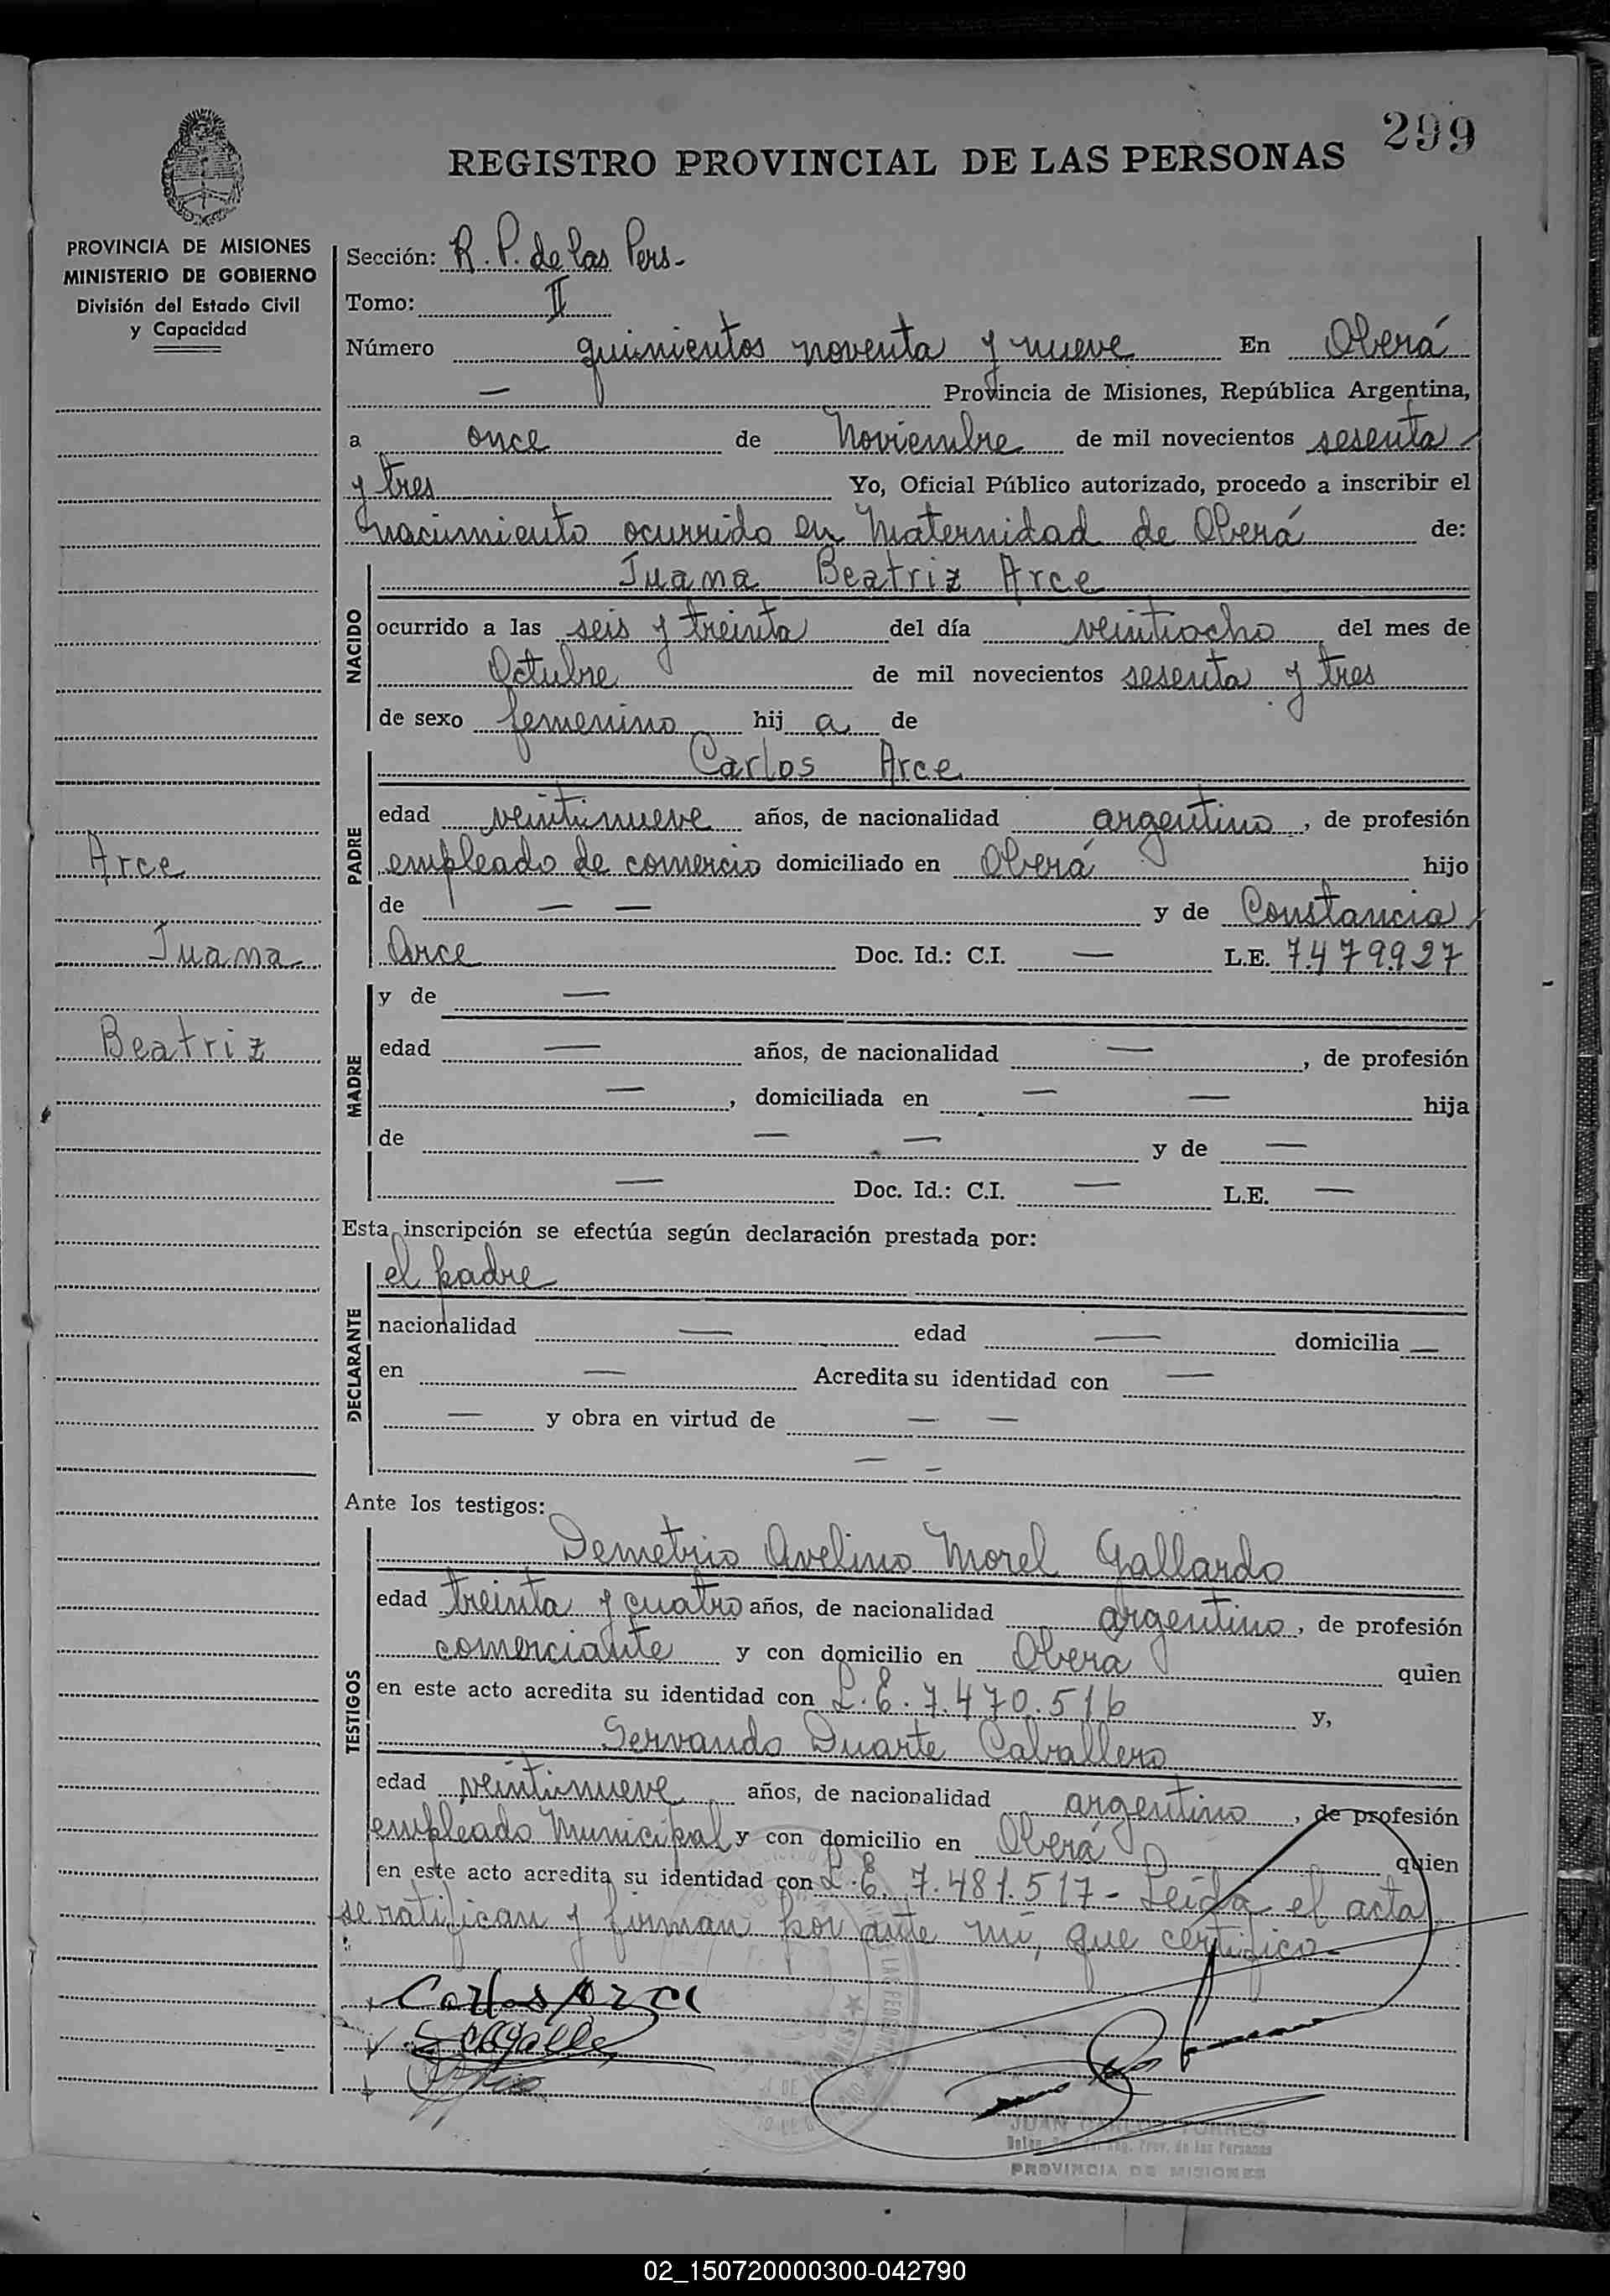 299
REGISTRO PROVINCIAL DE LAS PERSONAS
PROVINCIA DE MISIONES
MINISTERIO DE GOBIERNO
División del Estado Civil
y Capacidad
Arce
Juana
Beatriz
Sección: R. P. de las Pers-
Tomo: II
Número quinientos noventa y nueve En Oberá
— Provincia de Misiones, República Argentina,
a once de Noviembre de mil novecientos sesenta
y tres Yo, Oficial Público autorizado, procedo a inscribir el
nacimiento ocurrido en Maternidad de Oberá de:
NACIDO
Juana Beatriz Arce
ocurrido a las seis y treinta del día veintiocho del mes de
Octubre de mil novecientos sesenta y tres
de sexo femenino hij a de
PADRE
Carlos Arce
edad veintinueve años, de nacionalidad argentino, de profesión
empleado de comercio domiciliado en Oberá hijo
de — — y de Constancia
Arce Doc. Id.: C.I. — L.E. 7.479.927
MADRE
y de —
edad — años, de nacionalidad —, de profesión
—, domiciliada en — — hija
de — — y de —
— Doc. Id.: C.I. — L.E. —
Esta inscripción se efectúa según declaración prestada por:
DECLARANTE
el padre
nacionalidad — edad — domicilia —
en — Acredita su identidad con —
— y obra en virtud de — —
— —
Ante los testigos:
TESTIGOS
Demetrio Avelino Morel Gallardo
edad treinta y cuatro años, de nacionalidad argentino, de profesión
comerciante y con domicilio en Obera quien
en este acto acredita su identidad con L.E. 7.470.516 y,
Servando Duarte Caballero
edad veintinueve años, de nacionalidad argentino, de profesión
empleado Municipal y con domicilio en Oberá quien
en este acto acredita su identidad con L.E. 7.481.517- Leída el acta
se ratifican y firman por ante mi, que certifico-
Carlos Arce
JUAN CARLOS TORRES
PROVINCIA DE MISIONES
02_150720000300-042790